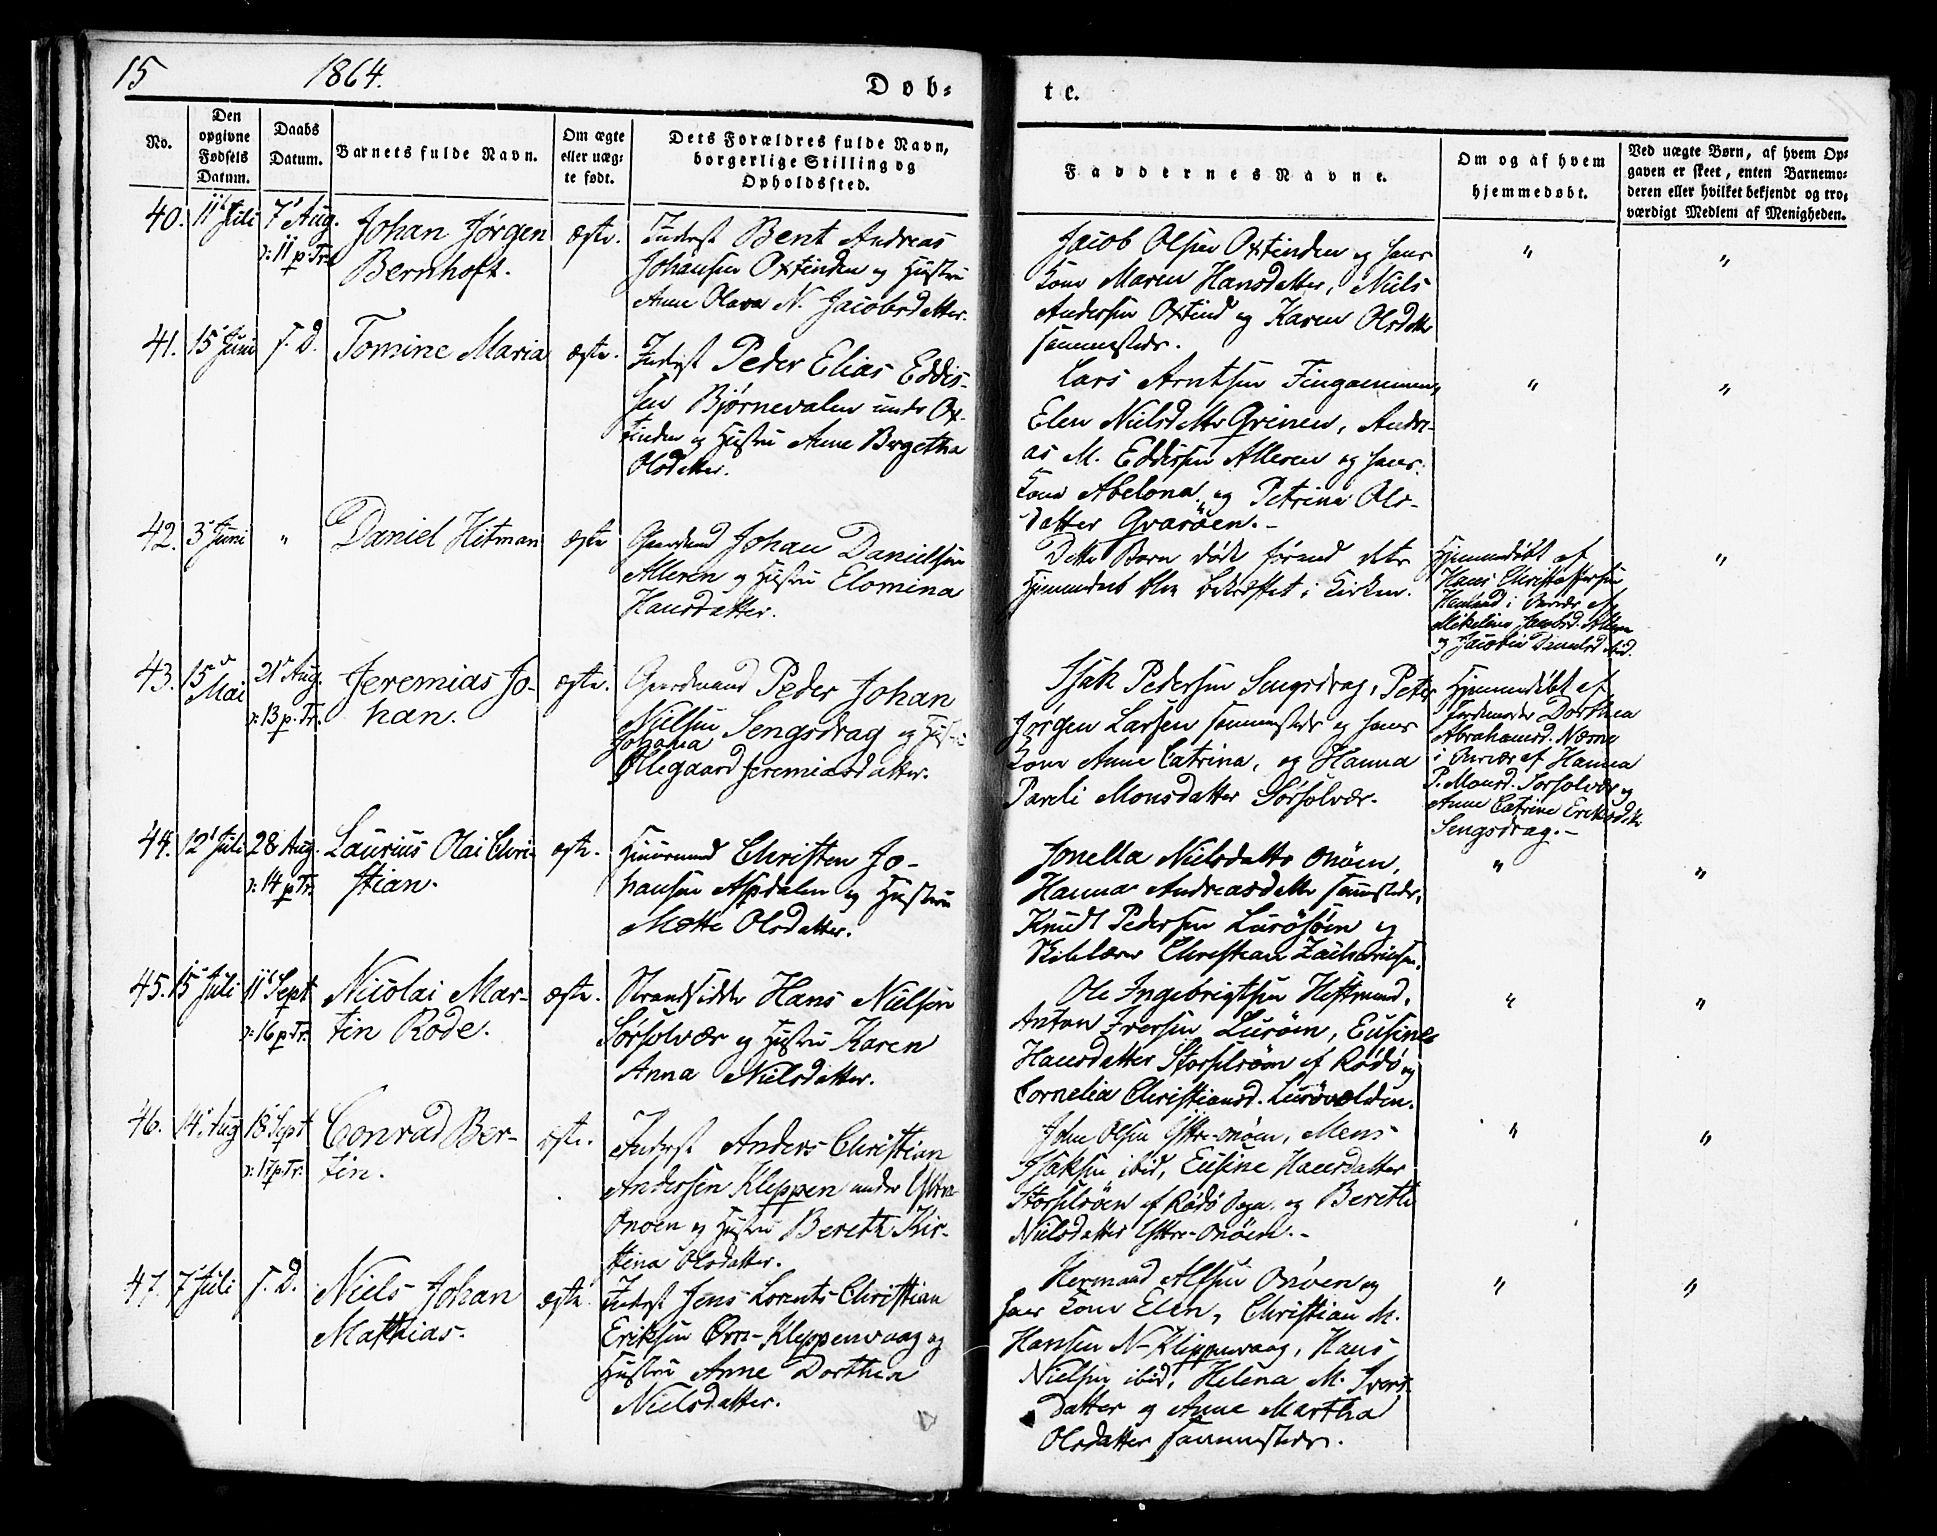 15
1864.
Døb-
te.
No.
Den
opgivne
Fødsels
Datum.
Daabs
Datum.
Barnets fulde Navn.
Om ægte
eller uæg-
te født.
Dets Forældres fulde Navn,
borgerlige Stilling og
Opholdssted.
Faddernes Navne.
Om og af hvem
hjemmedøbt.
Ved uægte Børn, af hvem Op-
gaven er skeet, enten Barnemo-
deren eller hvilket bekjendt og tro-
værdigt Medlem af Menigheden.
40.
11 Juli
7 Aug.
ɔ: 11 p. Tr.
Johan Jørgen
Bernhoft.
ægte.
Inderst Bent Andreas
Johansen Oxtinden og Hustru
Anne Olava N. Jacobsdatter.
Jacob Olsen Oxtinden og hans
Kone Maren Hansdatter, Niels
Andersen Oxtind og Karen Olsdatter
sammesteds.
"
"
41.
15 Juni
s. D.
Tomine Maria
ægte.
Inderst Peder Elias Eddis-
sen Bjørnevalen under Ox-
tinden og Hustru Anne Bergetha
Olsdatter.
Lars Arntsen Fingammen,
Elen Nielsdatter Grinen, Andre-
as M. Eddissen Alleren og hans
Kone Abelona, og Petrina Ols-
datter Gvarøen.-
"
"
42.
3 Juni
"
Daniel Hitman
ægte
Gaardmand Johan Danielsen
Alleren og Hustru Elomina
Hansdatter.
Dette Barn døde førend dets
Hjemmedaab blev bekræftet i Kirken.
Hjemmedøbt af
Hans Christoffersen
i Overvær af
Mikeline Jacobsd. Alleren
og Jacobine Danielsd. ibid.
"
43.
15
Mai
21 Aug.
ɔ: 13 p. Tr.
Jeremias Jo-
han.
ægte.
Gaardmand Peder Johan
Nielsen Sengsdrag og Hustru
Johanna
Ollegaard Jeremiasdatter.
Isak Pedersen Sengsdrag, Peter
Jørgen Larsen sammesteds og hans
Kone Anne Catrina, og Hanna
Pareli Monsdatter Sørsolvær.
Hjemmedøbt af
Jordemoder Dorthea
Abrahamsd. Næsna
i Overvær af Hanna
P. Monsd. Sørsolvær og
Anne Catrine Eriksdtr
Sengsdrag.-
44.
12 Juli
28 Aug.
ɔ: 14 p. Tr.
Laurius Olai Chri-
stian.
ægte.
Huusmand Christen Jo-
hansen Aspdalen og Hustru
Mette Olsdatter.
Jonella Nielsdatter Onøen,
Hanna Andreasdatter sammesteds,
Knudt Pedersen Lurøsøen og
Skolelærer Christian Zachariasen.
"
"
45.
15 Juli
11 Sept
ɔ: 16 p. Tr.
Nicolai Mar-
tin Rode.
ægte.
Strandsidder Hans Nielsen
Sørsolvær og Hustru Karen
Anna Nielsdatter.
Ole Ingebrigtsen Hestmand,
Anton Iversen Lurøen, Eusine
Hansdatter Storselsøen af Rødø og
Cornelia Christiansd. Lurøvolden.
"
"
46.
14 Aug
18 Sept
ɔ: 17 p. Tr.
Conrad Ber-
tin.
ægte.
Inderst Anders Christian
Andersen Kleppen under Ystre
Onøen og Hustru Bereth Kir-
stina Olsdatter.
John Olsen Ystre-Onøen, Mons
Isaksen ibid, Eusine Hansdatter
Storselsøen af Rødø Sogn og Bereth
Nielsdatter Ystre-Onøen.-
"
"
47.
7 Juli
s. D.
Niels Johan
Matthias.
ægte.
Inderst Jens Lorents Christian
Eriksen Ørn-Kleppenvaag og
Hustru Anne Dorthea
Nielsdatter.
Hermand Alfsen Onøen og
hans Kone Elen, Christian M.
Hansen N-Kleppenvaag, Hans
Nielsen ibid, Helena M. Ivers-
datter og Anne Martha
Olsdatter sammesteds.
"
"